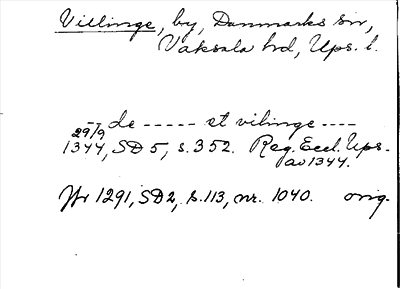 Villinge, by, Danmarks sn,
Vaksala hd, Ups. l.
-- de ----- et vilinge ----
29/9
1344, SD 5, s. 352. Reg. Eccl. Ups.
av 1344.
Jfr 1291, SD 2, s. 113, nr. 1040. orig.